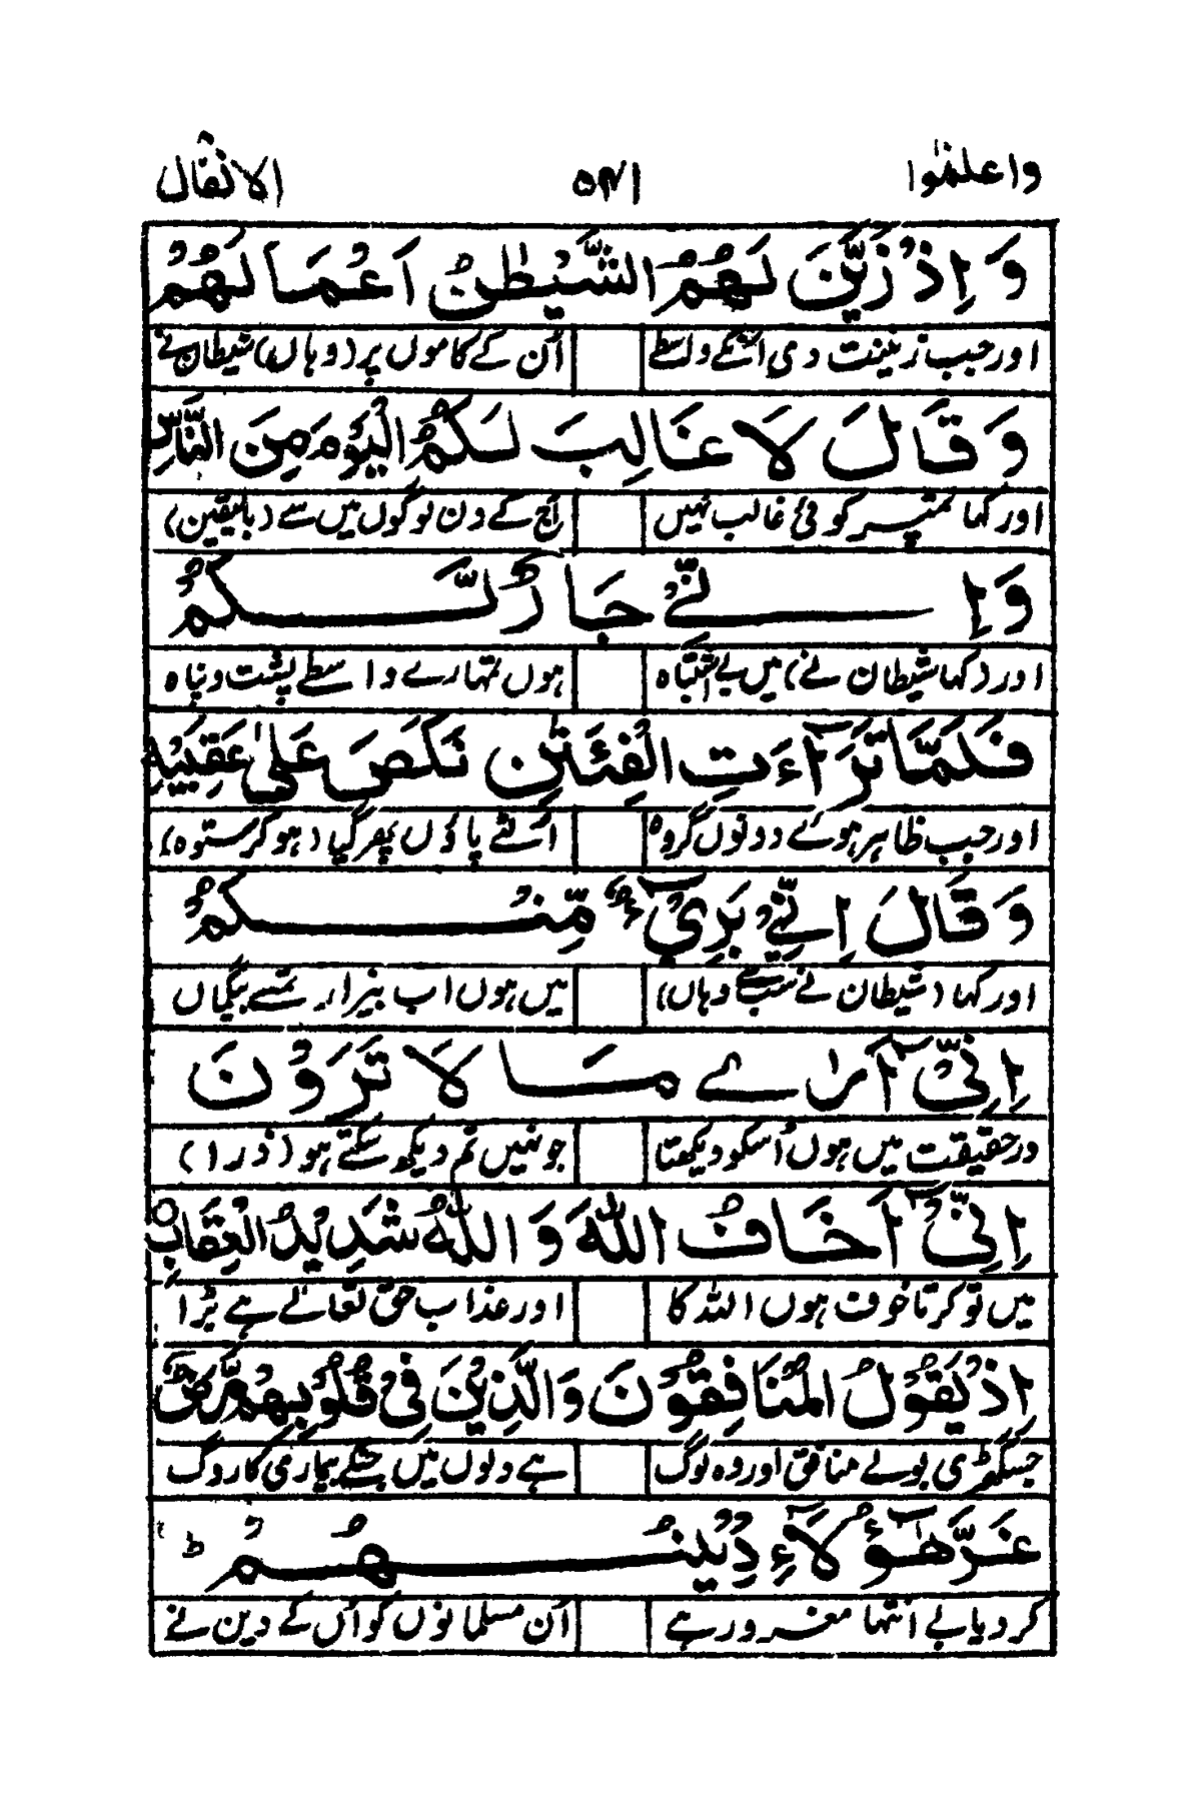 واعلموا ۵۴۱ الانفال
وَ اِذْ زَيَّنَ لَهُمُ الشَّيْطٰنُ اَعْمَالَهُمْ
اور جب زینت دی انکے واسطے اُن کے کاموں پر (وہاں) شیطان نے
وَ قَالَ لَا غَالِبَ لَكُمُ الْيَوْمَ مِنَ النَّاسِ
اور کہا تمپر کوئی غالب نہیں آج کے دن لوگوں میں سے (بالیقین)
وَ اِنِّیْ جَارٌ لَّكُمْ
اور (کہا شیطان نے) میں بے اشتباہ ہوں تمہارے واسطے پشت و پناہ
فَلَمَّا تَرَآءَتِ الْفِئَتٰنِ نَكَصَ عَلٰی عَقِبَيْهِ
اور جب ظاہر ہوئے دونوں گروہ اُلٹے پاؤں پھر گیا (ہو کر ستوہ)
وَ قَالَ اِنِّیْ بَرِیْٓءٌ مِّنْكُمْ
اور کہا (شیطان نے سب سے وہاں) میں ہوں اب بیزار تمسے بیگماں
اِنِّیْٓ اَرٰے مَا لَا تَرَوْنَ
درحقیقت میں ہوں اُسکو دیکھتا جو نہیں تم دیکھ سکتے ہو (ذرا)
اِنِّیْٓ اَخَافُ اللّٰهَ وَ اللّٰهُ شَدِيْدُ الْعِقَابِ
میں تو کرتا خوف ہوں اللہ کا اور عذاب حق تعالےٰ ہے بڑا
اِذْ يَقُوْلُ الْمُنَافِقُوْنَ وَالَّذِيْنَ فِیْ قُلُوْبِهِمْ مَّرَضٌ
جس گھڑی بولے منافق اور وہ لوگ ہے دلوں میں جنکے بیماری کا روگ
غَرَّ هٰٓؤُلَآءِ دِيْنُهُمْ ط
کر دیا بے انتہا مغرور ہے اُن مسلمانوں کو اُس کے دین نے